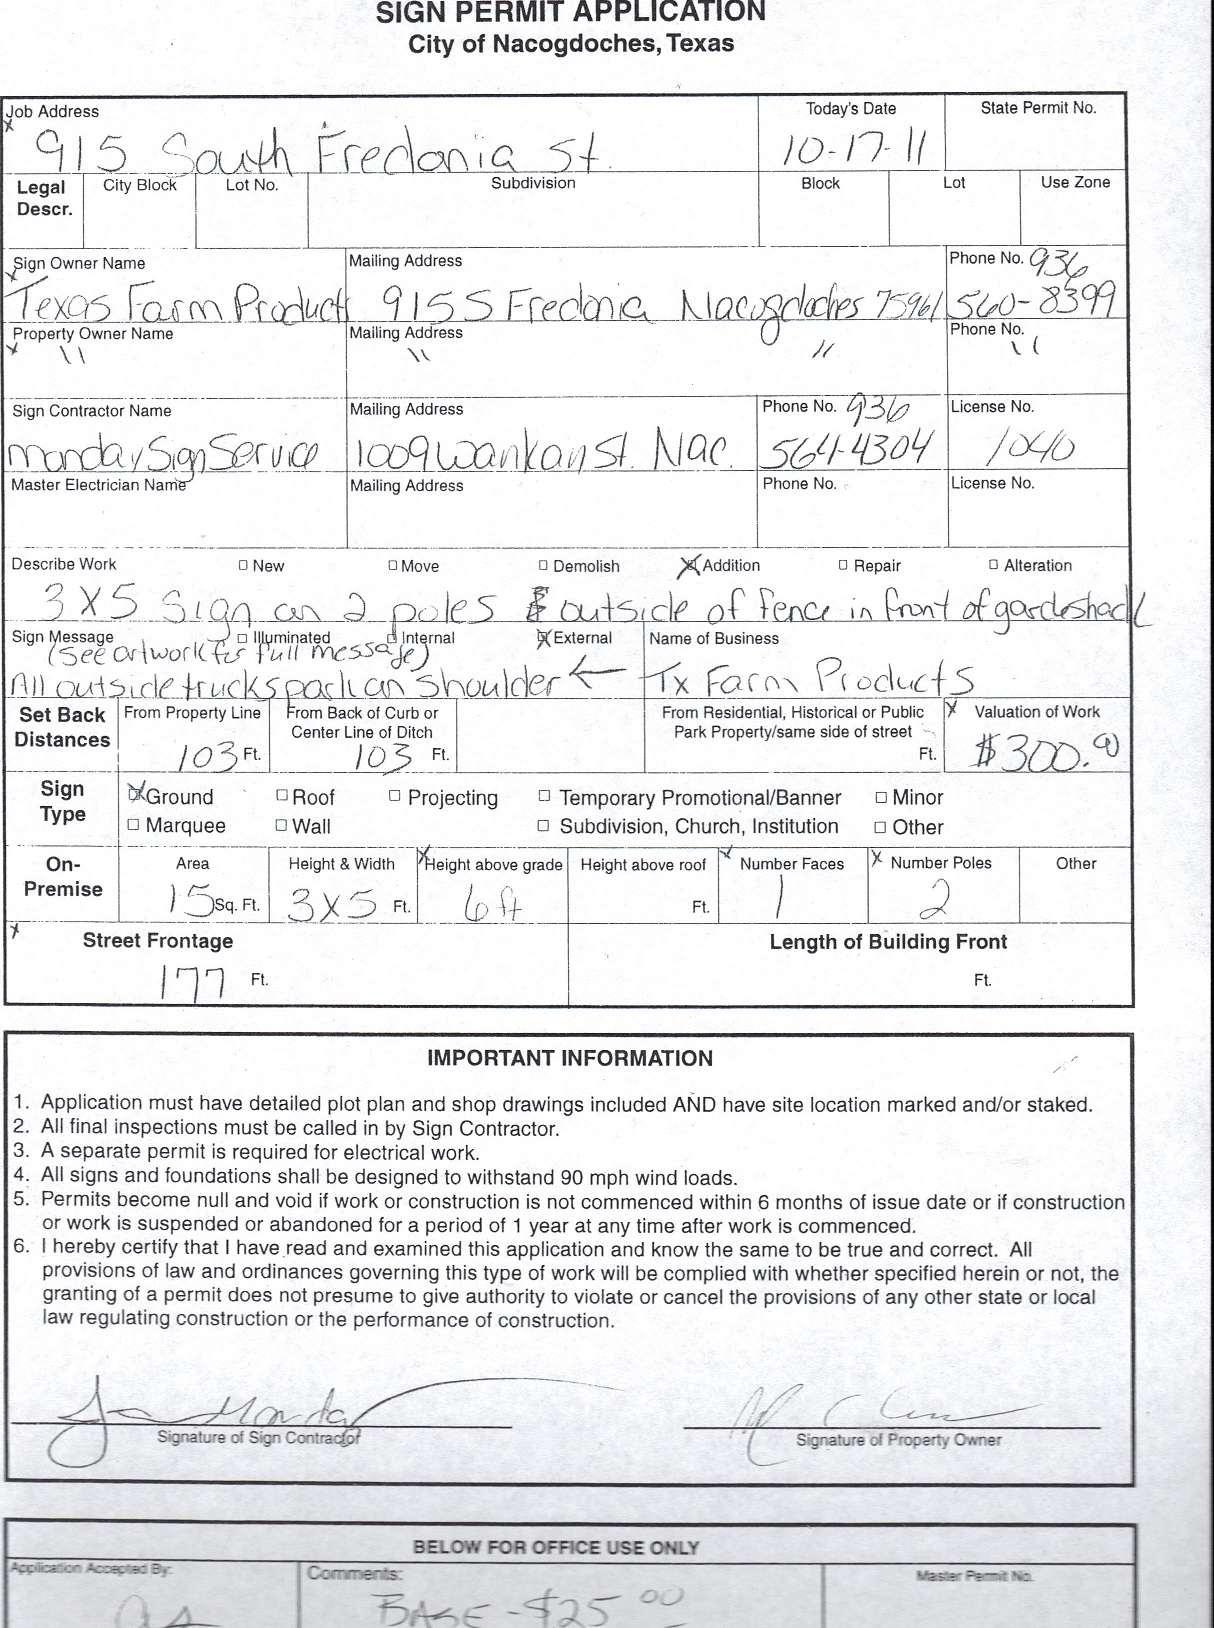 SIGN PERMIT APPLICATION
City of Nacogdoches, Texas
Job Address Today's Date State Permit No.
x 915 South Fredonia St. 10-17-11
Legal Descr. City Block Lot No. Subdivision Block Lot Use Zone
Sign Owner Name Mailing Address Phone No. 936
x Texas Farm Product 915 S Fredonia Nacogdoches 75961 560-8399
Property Owner Name Mailing Address Phone No.
x \\ \\ // \\
Sign Contractor Name Mailing Address Phone No. 936 License No.
Monday Sign Service 1009 Wankan St. Nac. 564-4304 1040
Master Electrician Name Mailing Address Phone No. License No.
Describe Work □ New □ Move □ Demolish ☒ Addition □ Repair □ Alteration
3 X 5 Sign on 2 poles outside of fence in front of gardeshack
Sign Message □ Illuminated □ Internal ☒ External Name of Business
(See artwork for full message)
All outside trucks park on shoulder ← Tx Farm Products
Set Back Distances From Property Line From Back of Curb or Center Line of Ditch From Residential, Historical or Public Park Property/same side of street x Valuation of Work
103 Ft. 103 Ft. Ft. $300.00
Sign Type ☒ Ground □ Roof □ Projecting □ Temporary Promotional/Banner □ Minor
□ Marquee □ Wall □ Subdivision, Church, Institution □ Other
On-Premise Area Height & Width x Height above grade Height above roof x Number Faces x Number Poles Other
15 Sq. Ft. 3 X 5 Ft. 6 ft Ft. 1 2
x Street Frontage Length of Building Front
177 Ft. Ft.
IMPORTANT INFORMATION
1. Application must have detailed plot plan and shop drawings included AND have site location marked and/or staked.
2. All final inspections must be called in by Sign Contractor.
3. A separate permit is required for electrical work.
4. All signs and foundations shall be designed to withstand 90 mph wind loads.
5. Permits become null and void if work or construction is not commenced within 6 months of issue date or if construction
or work is suspended or abandoned for a period of 1 year at any time after work is commenced.
6. I hereby certify that I have read and examined this application and know the same to be true and correct. All
provisions of law and ordinances governing this type of work will be complied with whether specified herein or not, the
granting of a permit does not presume to give authority to violate or cancel the provisions of any other state or local
law regulating construction or the performance of construction.
Monday
Signature of Sign Contractor Signature of Property Owner
BELOW FOR OFFICE USE ONLY
Application Accepted By: Comments: Master Permit No.
BASE - $25 00